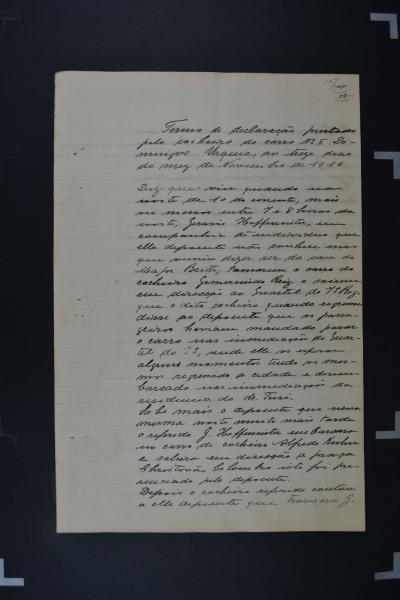 Termo de declaração prestado
pelo cocheiro do carro Nº 5 Do-
mingos Urquia, ao treze dias
do mez de Novembro de 1916
Diz que: viu quando na
noite de 10 do corrente, mais
ou menos entre 7 e 8 horas da
noite, Hoffmeister, em
companhia de individuos que
elle depoente não conhece mas
que ouviu dizer ser da casa do
Major Britto, tomaram o carro do
cocheiro Gomercindo Ruiz e sairam
em direcção ao Quartel do 7º Reg.
que o dito cocheiro quando regressou
disse ao depoente que os passa-
geiros haviam mandado parar
o carro nas immediações do Quar-
tel do, onde elle os esperou
alguns momentos tendo os mes-
mos regressado a cidade e desem-
barcado nas immediações da
residencia do dr. Turi.
Sabe mais o depoente que nessa
mesma noite muito mais tarde
o referido G. Hoffmeister embarcou
no carro de cocheiro Alfredo
e sahiu em direcção a praça
Christovão Colombo isto foi pre-
senciado pelo depoente.
Depois o cocheiro referido contou
a elle depoente que trouxera G.